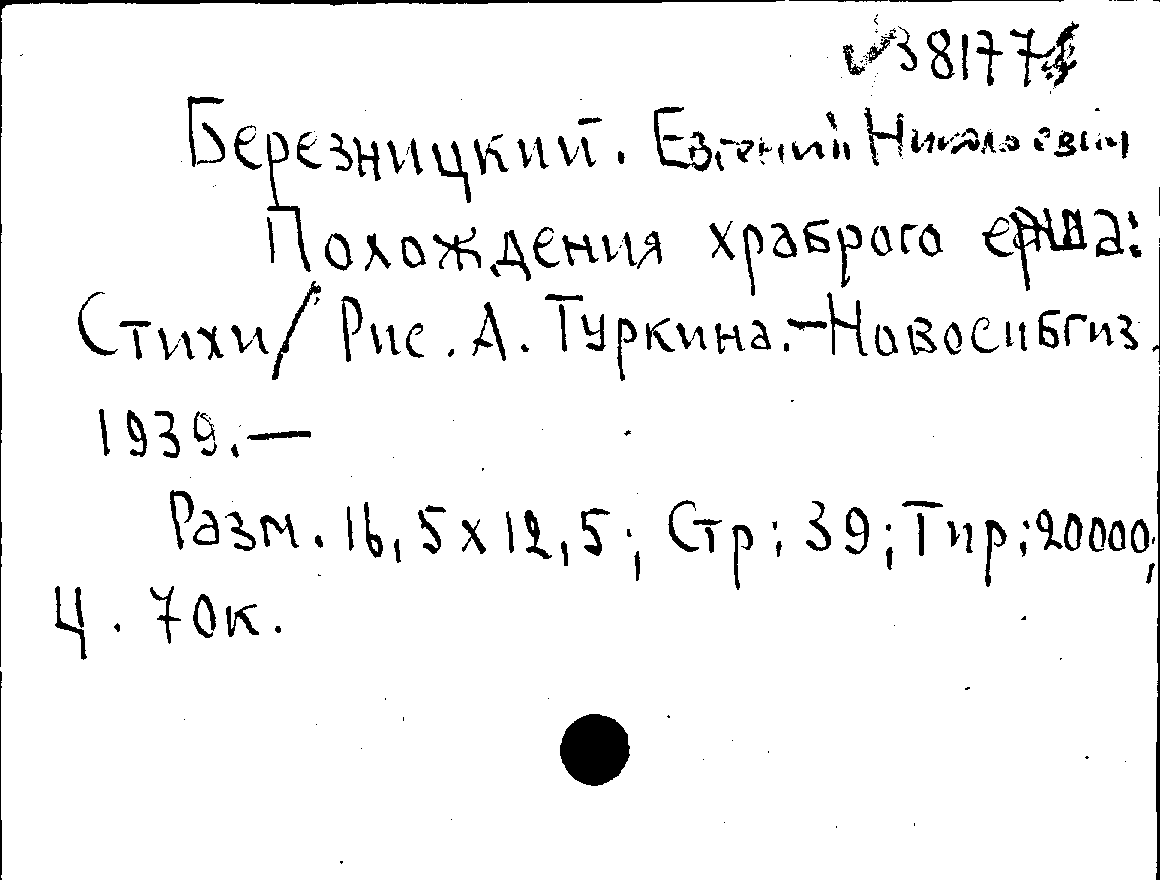 38177
Березницкий. Евгений Николаевич
Похождения храброго ерша:
Стихи/ Рис. А. Туркина.-Новосибгиз.
1939.—
Разм. 16,5х12,5; Стр; 39; Тир; 20000;
Ц. 70к.